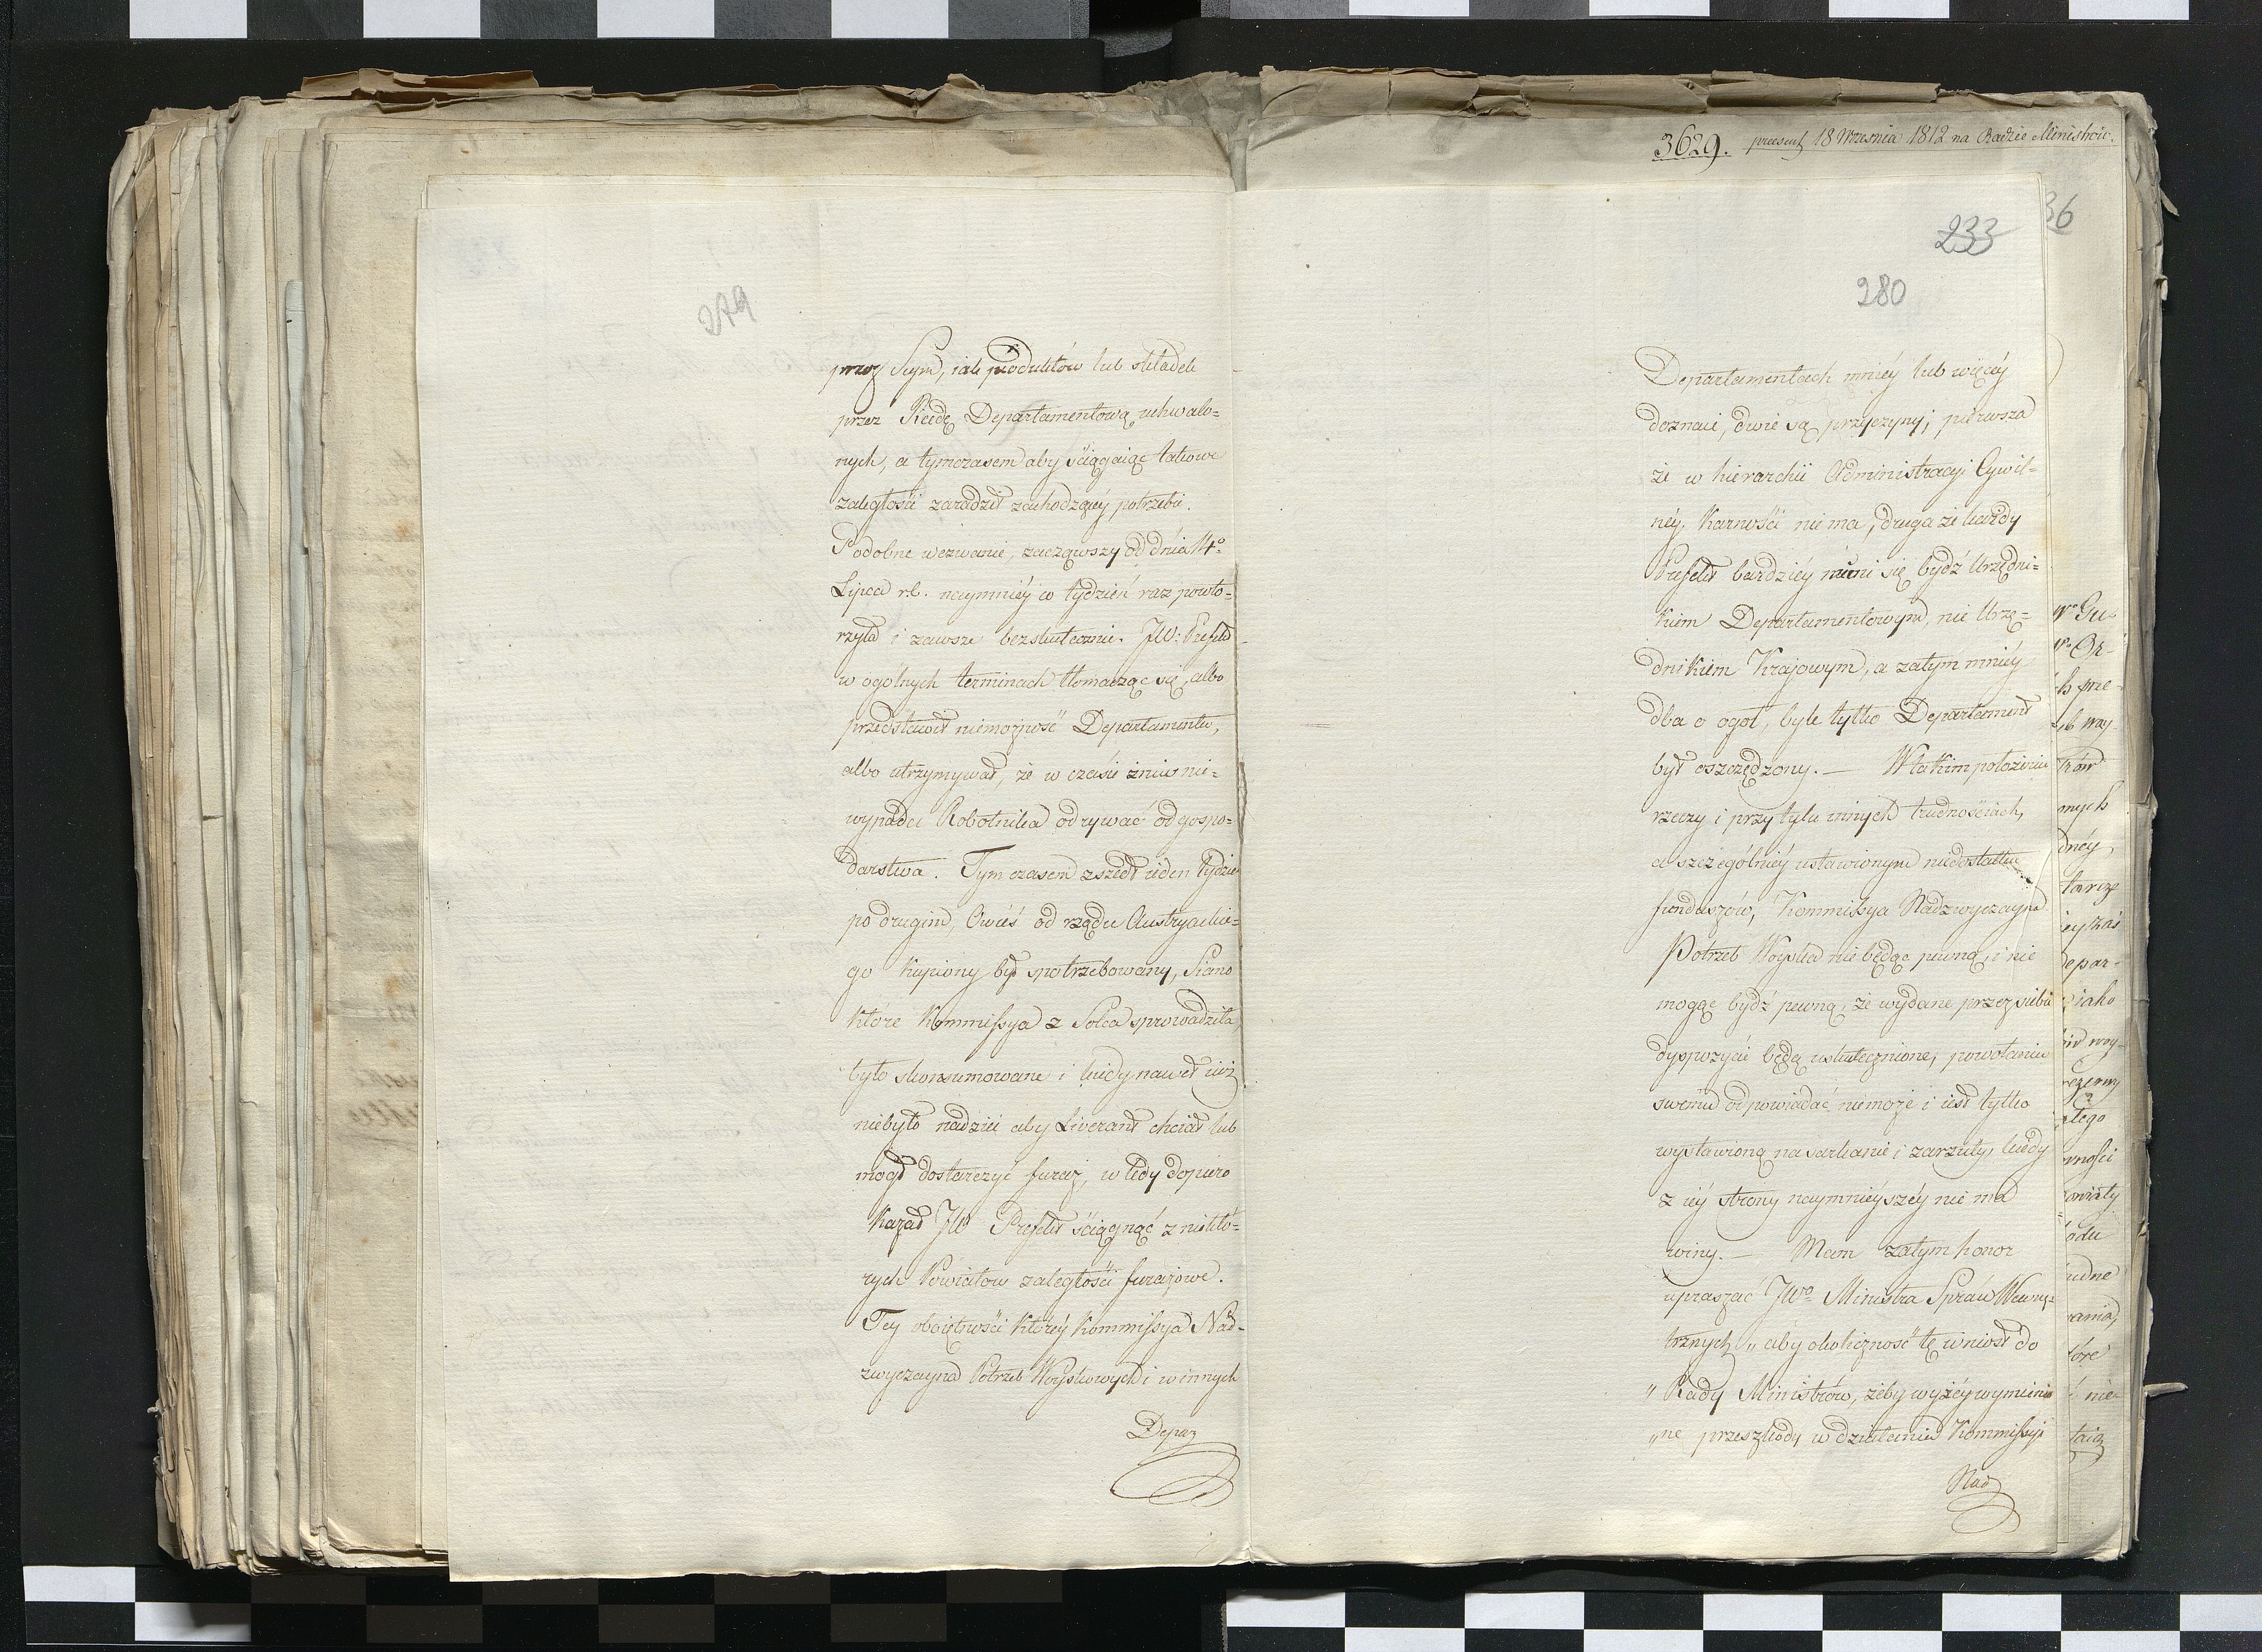 279
przez Seym, iak produktów lub składek
przez Radę Departamentową uchwalo=
nych, a tymczasem aby ściągaiąc takowe
zaległości zaradził zachodzącéy potrzebie.
Podobne wezwanie, zacząwszy od dnia 14º
Lipca r.b. naymniéy co tydzień raz powto=
rzyła i zawsze bezskutecznie. JW: Prefekt
w ogólnych terminach tłomacząc się, albo
przedstawiał niemożność Departamentu,
albo utrzymywał, że w czasie żniw nie=
wypada Robotnika odrywać od gospo=
darstwa. Tym czasem zszedł ieden tydzień
po drugim, Owies od rządu Austryackie=
go kupiony był spotrzebowany, Siano
które Kommissya z Solca sprowadziła,
było skonsumowane i kiedy nawet iuż
niebyło nadziei aby Liwerant chciał lub
mógł dostarczyć furaż, wtedy dopiero
kazał JW Prefekt ściągnąć z niektó=
rych Powiatow zaległości furażowe.
Tey oboiętności któréy Kommissya Nad=
zwyczayna Potrzeb Woyskowych i w innych
Depar
3629. praesent 18 Wresnia 1812 na Radzie Ministrów.
36
233
280
Departamentach mniéy lub więcéy
doznaie, dwie są przyczyny; pierwsza
że w hierarchii Administracyi Cywil=
néy, Karności nie ma, druga że każdy
Prefekt bardziéy mieni się bydź Urzędni=
kiem Departamentowym, nie Urzę=
dnikiem Krajowym, a zatym mniéy
dba o ogół, byle tylko Departament
był oszczędzony. — W takim położeniu
rzeczy i przy tylu innych trudnościach,
a szczególniéy ustawionym niedostatku
funduszów, Kommissya Nadzwyczayna
Potrzeb Woyska nie będąc pewną, i nie
mogąc bydź pewną, że wydane przez siebie
dyspozycie będą uskutecznione, powołaniu
swemu odpowiadać niemoże i iest tylko
wystawioną na sarkanie i zarzuty, kiedy
z iéy strony naymnieyszéy nie ma
winy. — Mam zatym honor
upraszać JWº Ministra Spraw Wewnę=
trznych „aby okoliczność tę wniosł do
„Rady Ministrów, żeby wyżéy wymienio
„ne przeszkody w działaniu Kommissyi
Nad